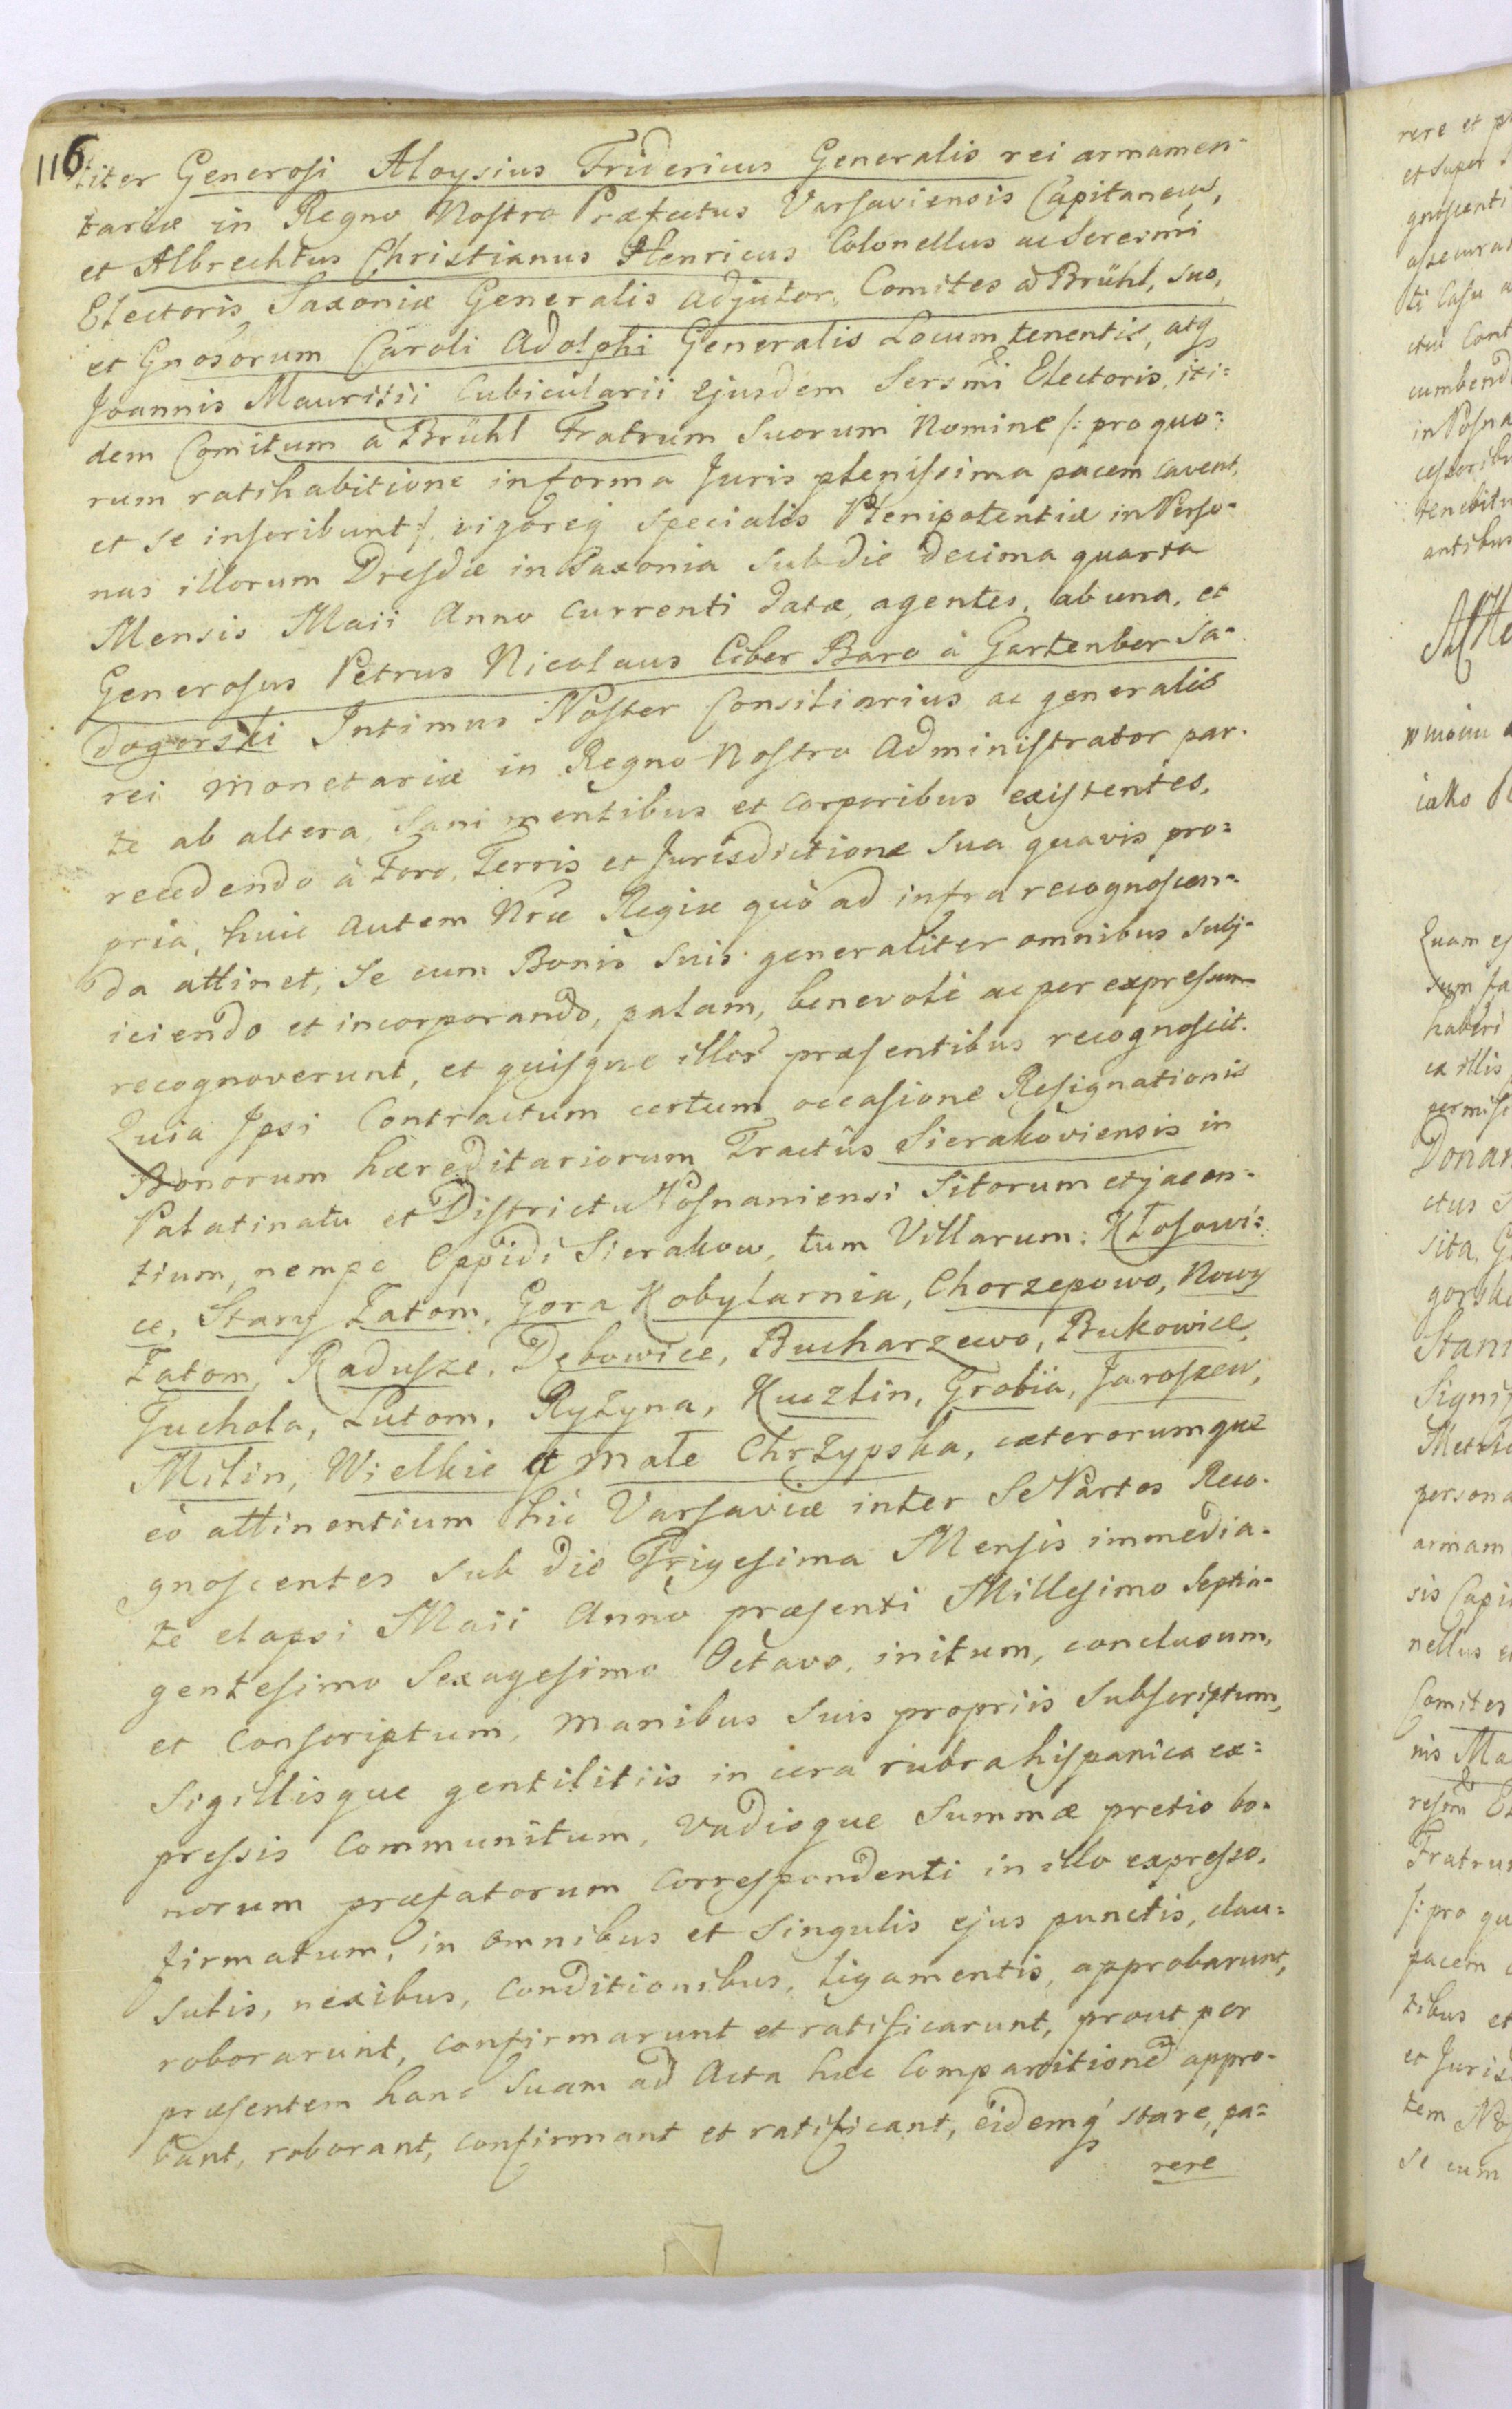 116
titer Generosi Aloysius Fridericus Generalis rei armamen-
tariæ in Regno Nostro Præfectus Varsaviensis Capitaneus,
et Albrechtus Christianus Henricus Colonellus ac Sereṁi
Electoris Saxoniæ Generalis Adjutor, Comites à Brühl, suo,
et Gnosorum Caroli Adolphi Generalis Locum tenentis, atq
Joannis Mauritii Cubicularii Ejusdem Sersmi Electoris, iti=
dem Comitum a Brühl Fratrum Suorum Nomine /: pro quo=
rum ratihabitione in forma Juris plenissima pacem cavent,
et se inscribunt :/ vigoreq specialis Plenipotentiæ in Perso-
nas illorum Dresdæ in Saxonia sub die Decima quarta
Mensis Maii Anno currenti datæ, agentes, ab una, et
Generosus Petrus Nicolaus Liber Baro à Gartenber Sa-
dogorski Intimus Noster Consiliarius ac generalis
rei monetariæ in Regno Nostro Administrator par-
te ab altera, Sani mentibus et corporibus existentes,
recedendo à Foro, Terris et Jurisdictione sua quavis pro=
pria, huic autem Nræ Regiæ quò ad infra recognoscen-
da attinet, se cum Bonis Suis generaliter omnibus subj-
iciendo et incorporando, palam, benevolè ac per expressum
recognoverunt, et quisque illor præsentibus recognoscit.
Quia Ipsi Contractum certum occasione Resignationis
Bonorum hæreditariorum Tractûs Sierakoviensis in
Palatinatu et Districtu Posnaniensi Sitorum et jacen-
tium, nempe Oppidi Sierakow, tum Villarum: Kłosowi=
ce, Stary Zatom, Gora Kobylarnia, Chorzepowo, Nowy
Zatom, Radusze, Dębowice, Bucharzewo, Bukowice,
Tuchola, Lutom, Ryżyna, Kuczlin, Grobia, Jaroszew,
Milin, Wielkie et Małe Chrżypska, cæterorumque
eò attinentium hìc Varsaviæ inter Se Partes Reco-
gnoscentes sub die Trigesima Mensis immedia-
te elapsi Maii Anno præsenti Millesimo Septin-
gentesimo Sexagesimo Octavo, initum, conclusum,
et conscriptum, manibus suis propriis subscriptum,
sigillisque gentilitiis in cera rubra hispanica ex=
pressis communitum, vadioque Summæ pretio bo-
norum præfatorum correspondenti in illo expresso,
firmatum, in omnibus et singulis ejus punctis, clau=
sulis, nexibus, conditionibus, ligamentis, approbarunt,
roborarunt, confirmarunt et ratificarunt, prout per
præsentem hanc Suam ad Acta hæc Comparitionem appro-
bant, roborant, confirmant et ratificant, eidemq stare, pa=
rere
rere et
et super
gnoscenti
assecurat
ti Casu
ctus Cont
cumbend
in Posna
cessoribu
tenebitu
antibus
iako
Quam
tum
haberi
ex illis
permis
Donar
ctus
sita, G
gorski
Stani
Signi
Metric
persona
armam
sis Capi
nellus
Comites
nis Ma
Fratru
/: pro qu
pacem
tibus et
et Juris
tem
se cum